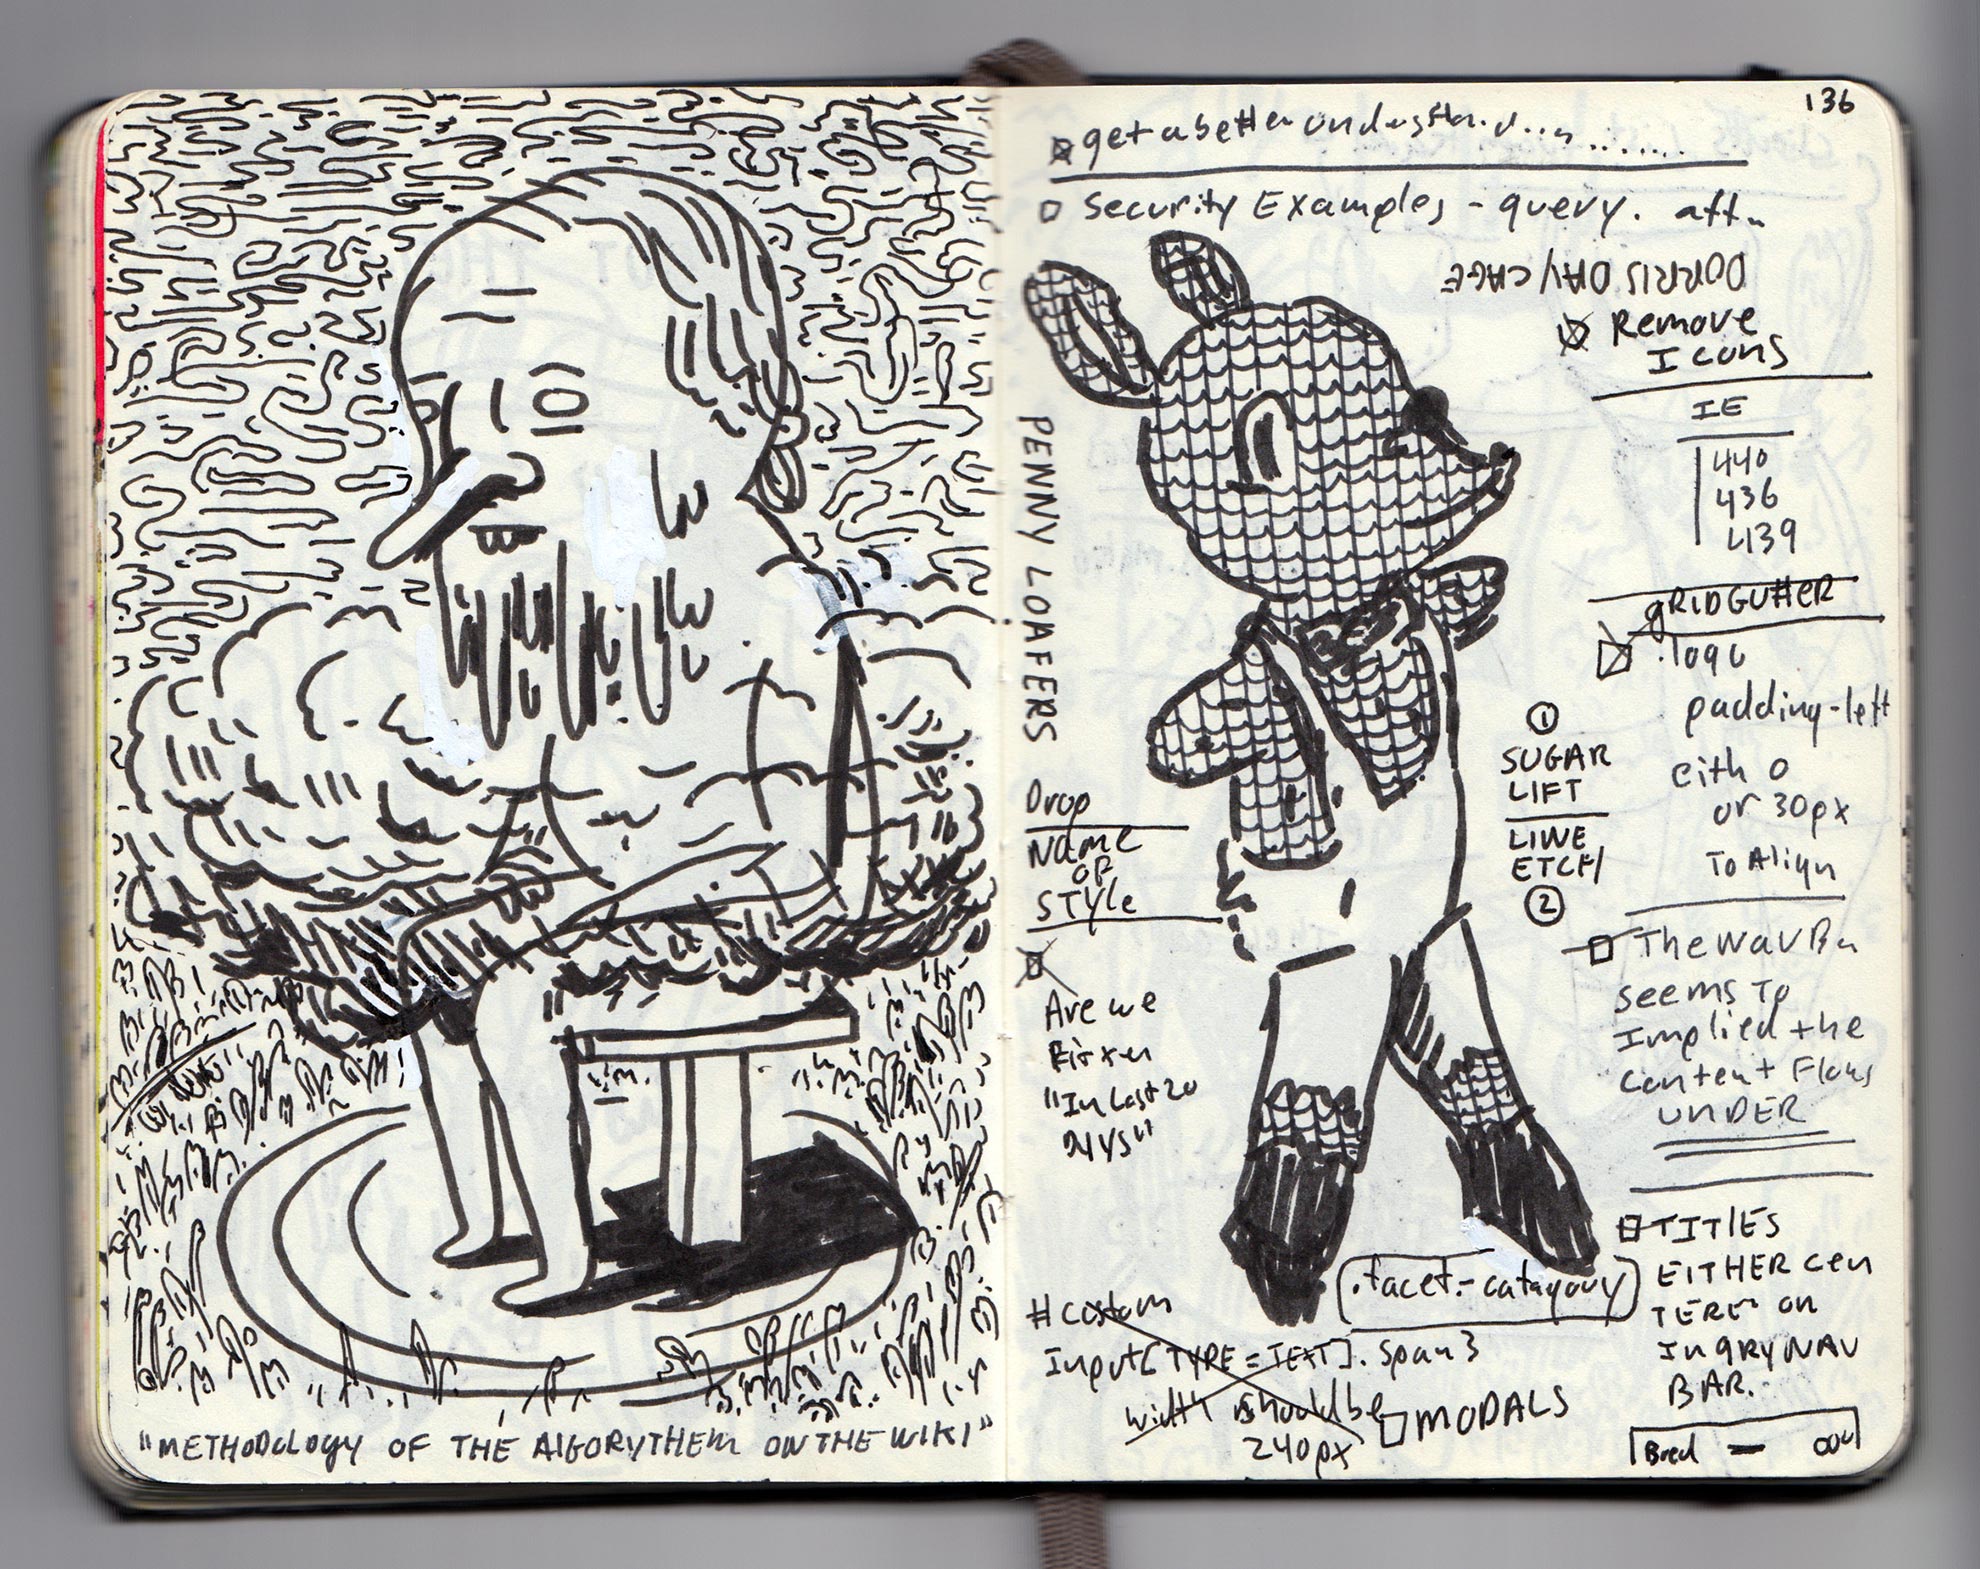 "METHODOLOGY OF THE AlGORYTHEM ON THE WIKI"
136
get a better
Security Examples - query. attn
DORRIS DAY/CAGE
Remove
Icons
IE
440
436
439
gRIDGUttER
.logo
padding-left
eith 0
or 30px
To Align
PENNY LOAFERS
①
SUGAR
LIFT
LINE
ETCH/
②
Drop
NAME
OF
STYle
Are we
"In Last 20
The NavBar
seems To
Implied the
Content Flows
UNDER
TITlES
EITHER Cen
TERED on
In gRY NAV
BAR.
.facet-catagory
#custom
Input[TYPE=TEXT].span3
width should be
240px
MODALS